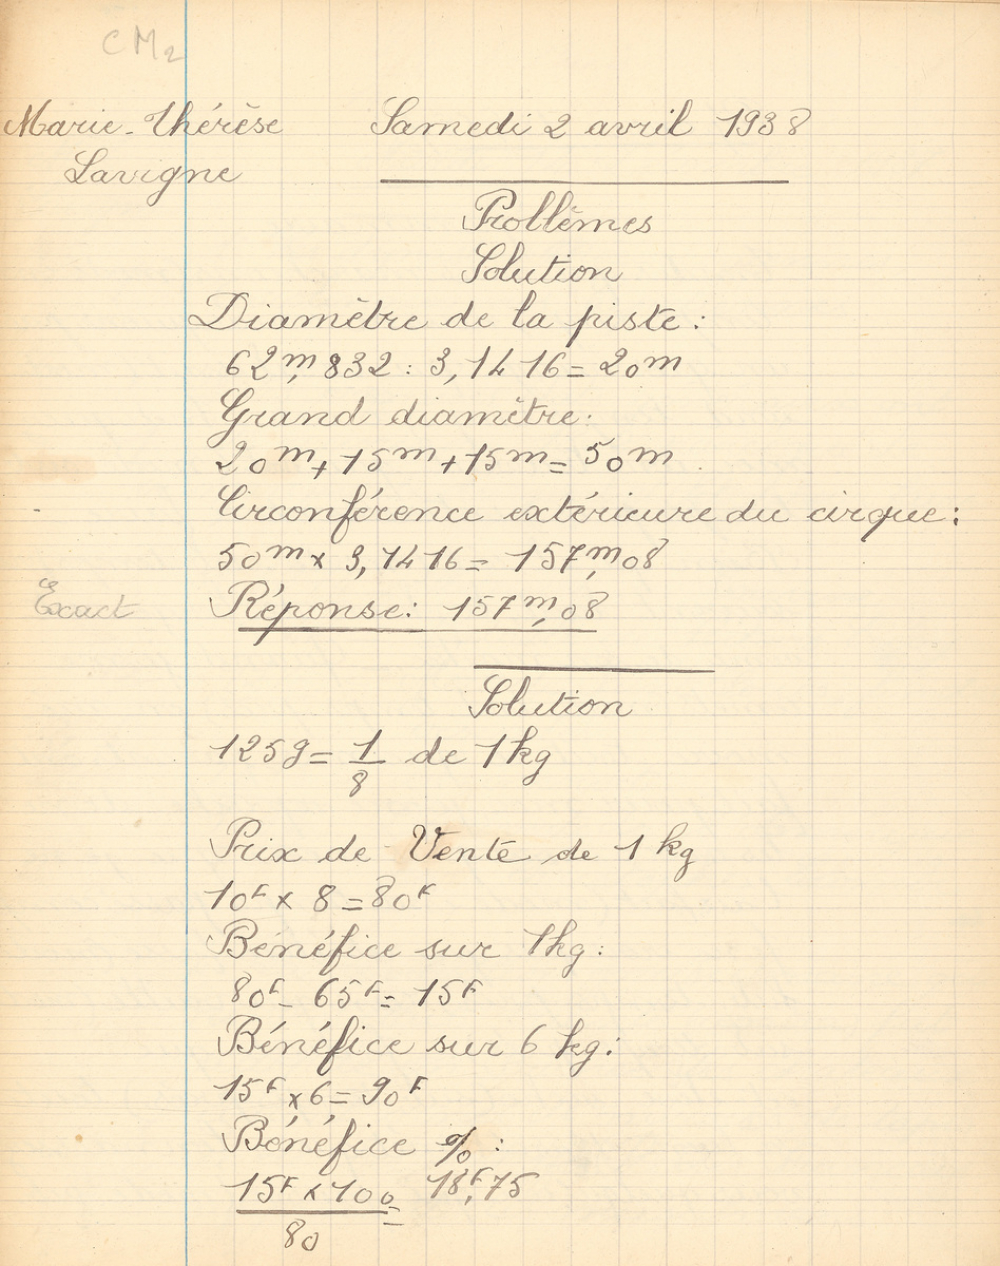 CM2
Marie-Thérèse Samedi 2 avril 1938
Lavigne
Problèmes
Solution
Diamètre de la piste :
62m,832 : 3,1416 = 20m
Grand diamètre :
20m + 15m + 15m = 50m
Circonférence extérieure du cirque :
50m x 3,1416 = 157m,08
Exact Réponse : 157m,08
Solution
125g = 1/8 de 1kg
Prix de Vente de 1 kg
10F x 8 = 80F
Bénéfice sur 1kg :
80F - 65F = 15F
Bénéfice sur 6 kg :
15F x 6 = 90F
Bénéfice % :
15F x 100 / 80 = 18F,75